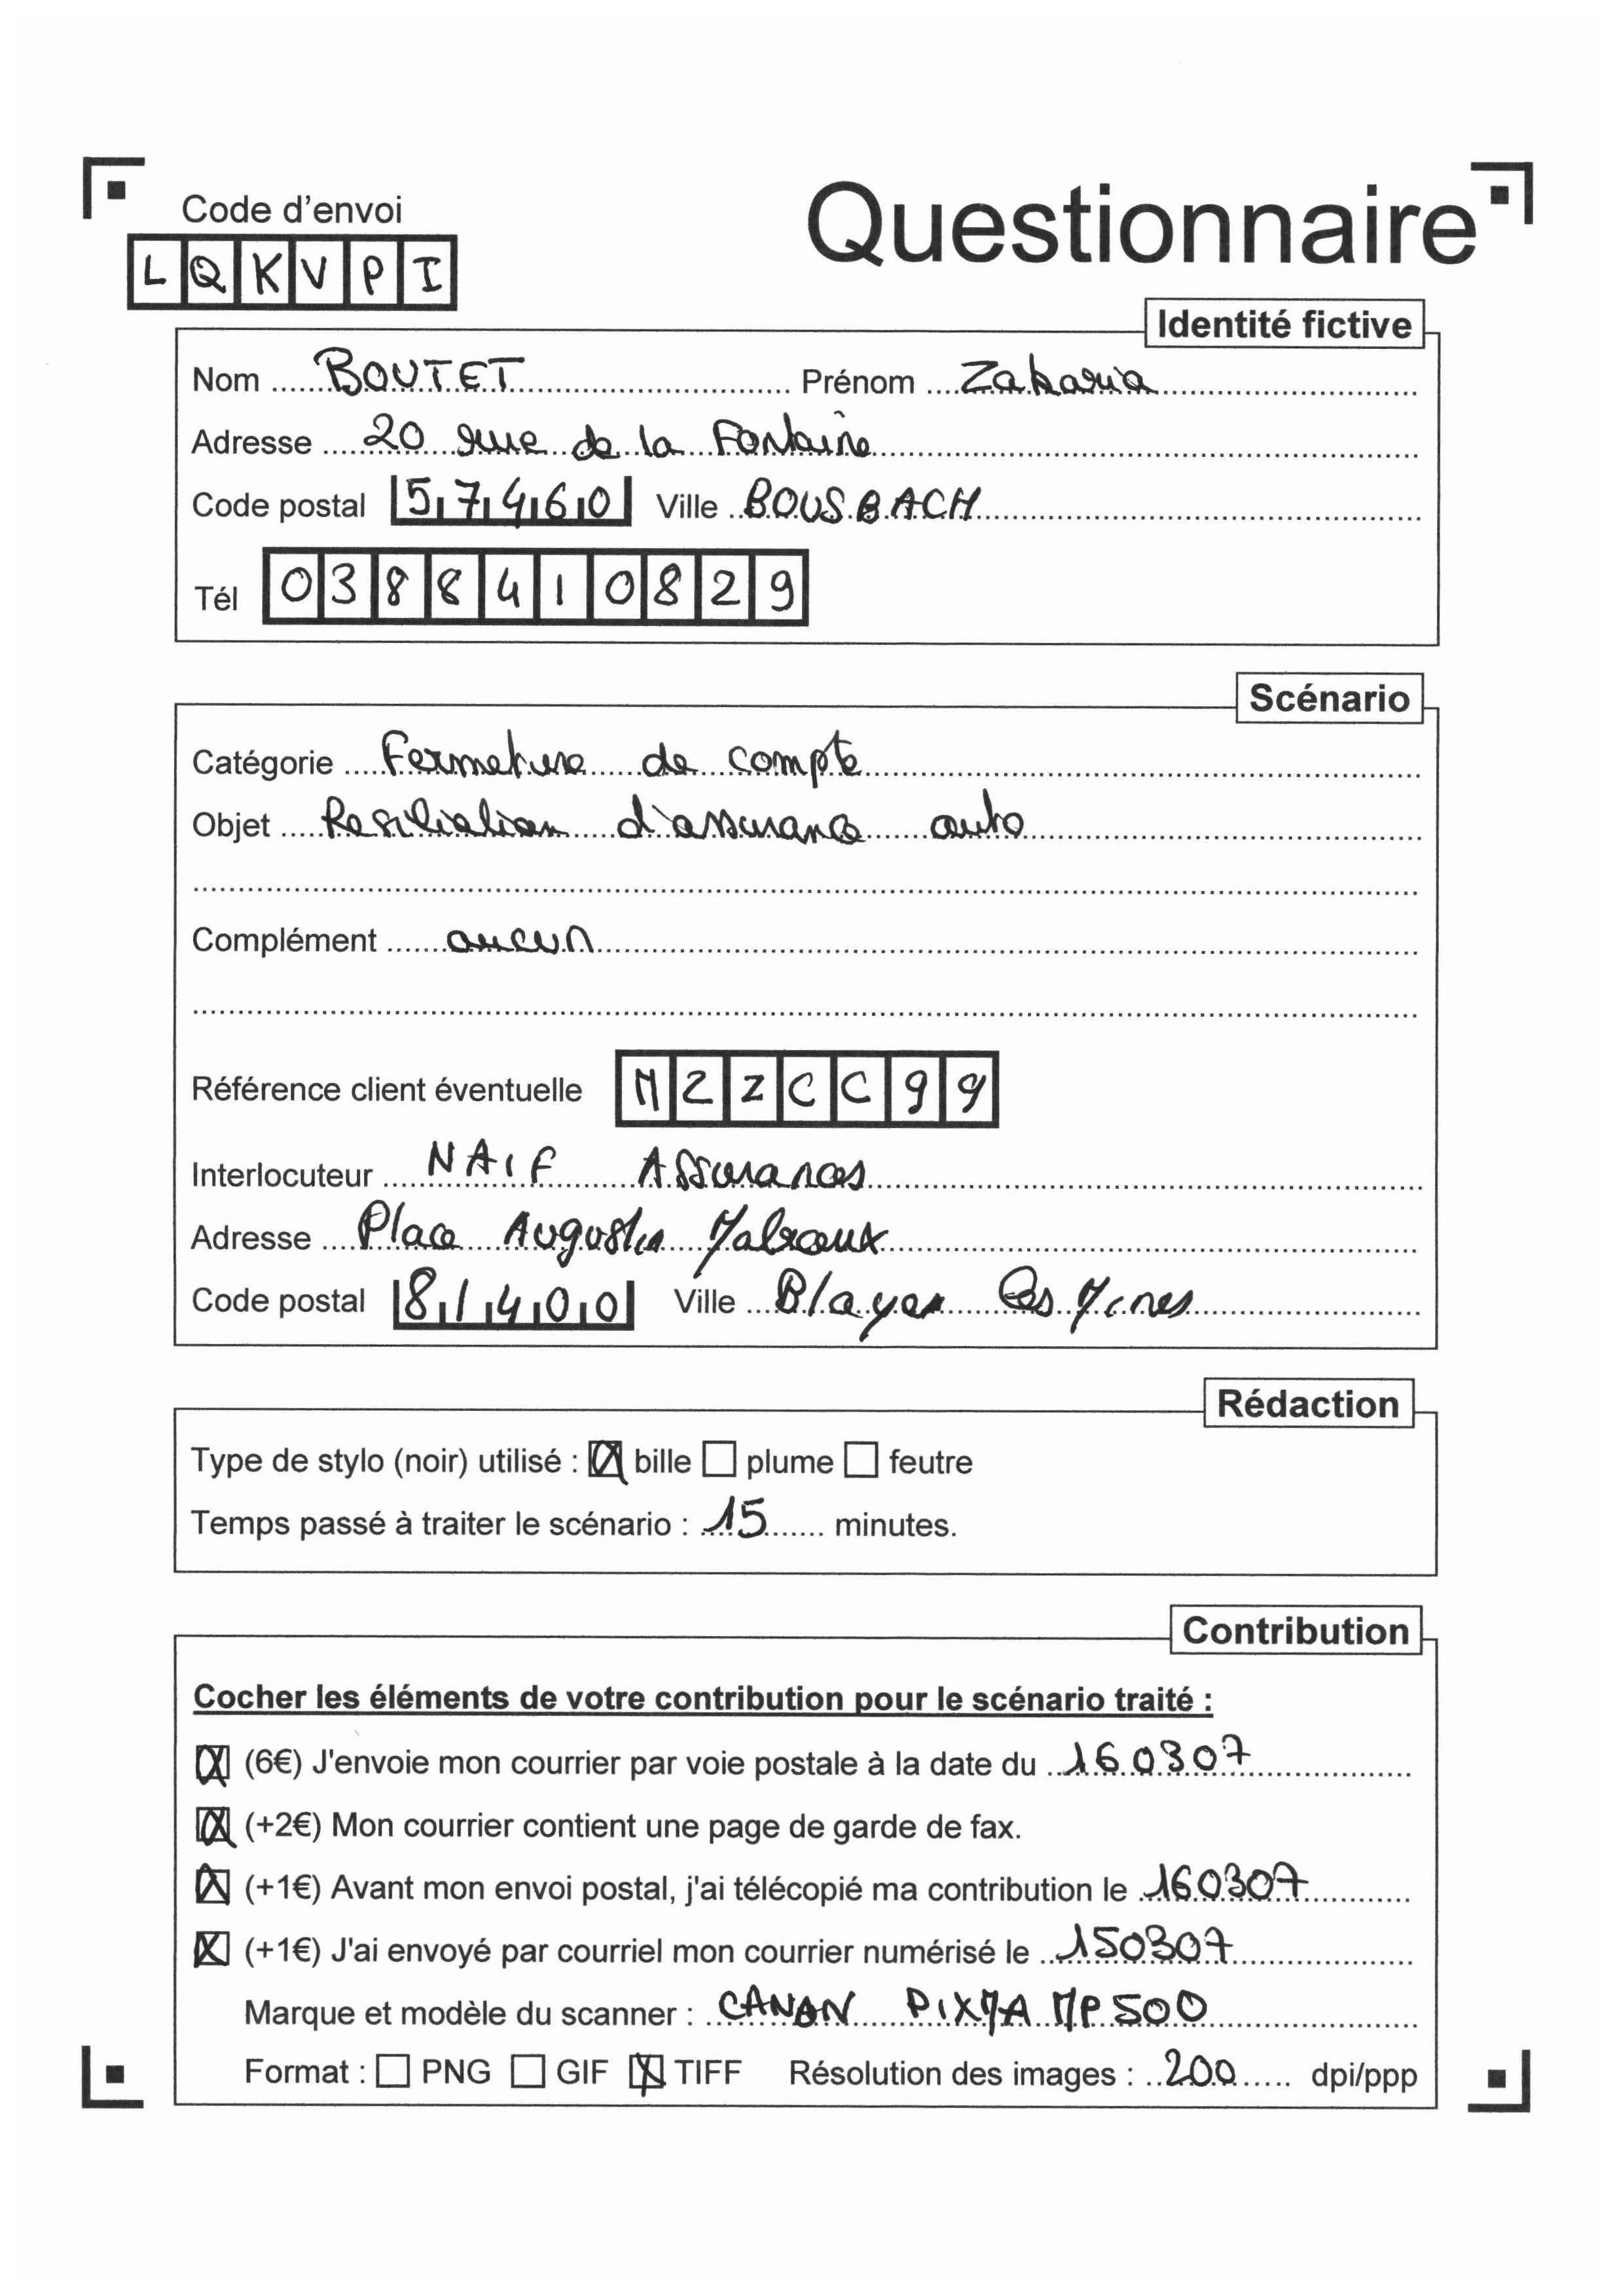 Code d'envoi
Questionnaire
LQKVPI
Identité fictive
Nom BOUTET Prénom Zakaria
Adresse 20 rue de la Fontaine
Code postal 57460 Ville BOUSBACH
Tél 0388410829
Scénario
Catégorie Fermeture de compte
Objet Resiliation d'assurance auto
Complément aucun
Référence client éventuelle MZZCC99
Interlocuteur NAIF Assurances
Adresse Place Augustin Malroux
Code postal 81400 Ville Blaye les Mines
Rédaction
Type de stylo (noir) utilisé : bille plume feutre
Temps passé à traiter le scénario : 15 minutes.
Contribution
Cocher les éléments de votre contribution pour le scénario traité :
(6€) J'envoie mon courrier par voie postale à la date du 160307
(+2€) Mon courrier contient une page de garde de fax.
(+1€) Avant mon envoi postal, j'ai télécopié ma contribution le 160307
(+1€) J'ai envoyé par courriel mon courrier numérisé le 150307
Marque et modèle du scanner : CANON PIXMA MP500
Format : PNG GIF TIFF Résolution des images : 200 dpi/ppp